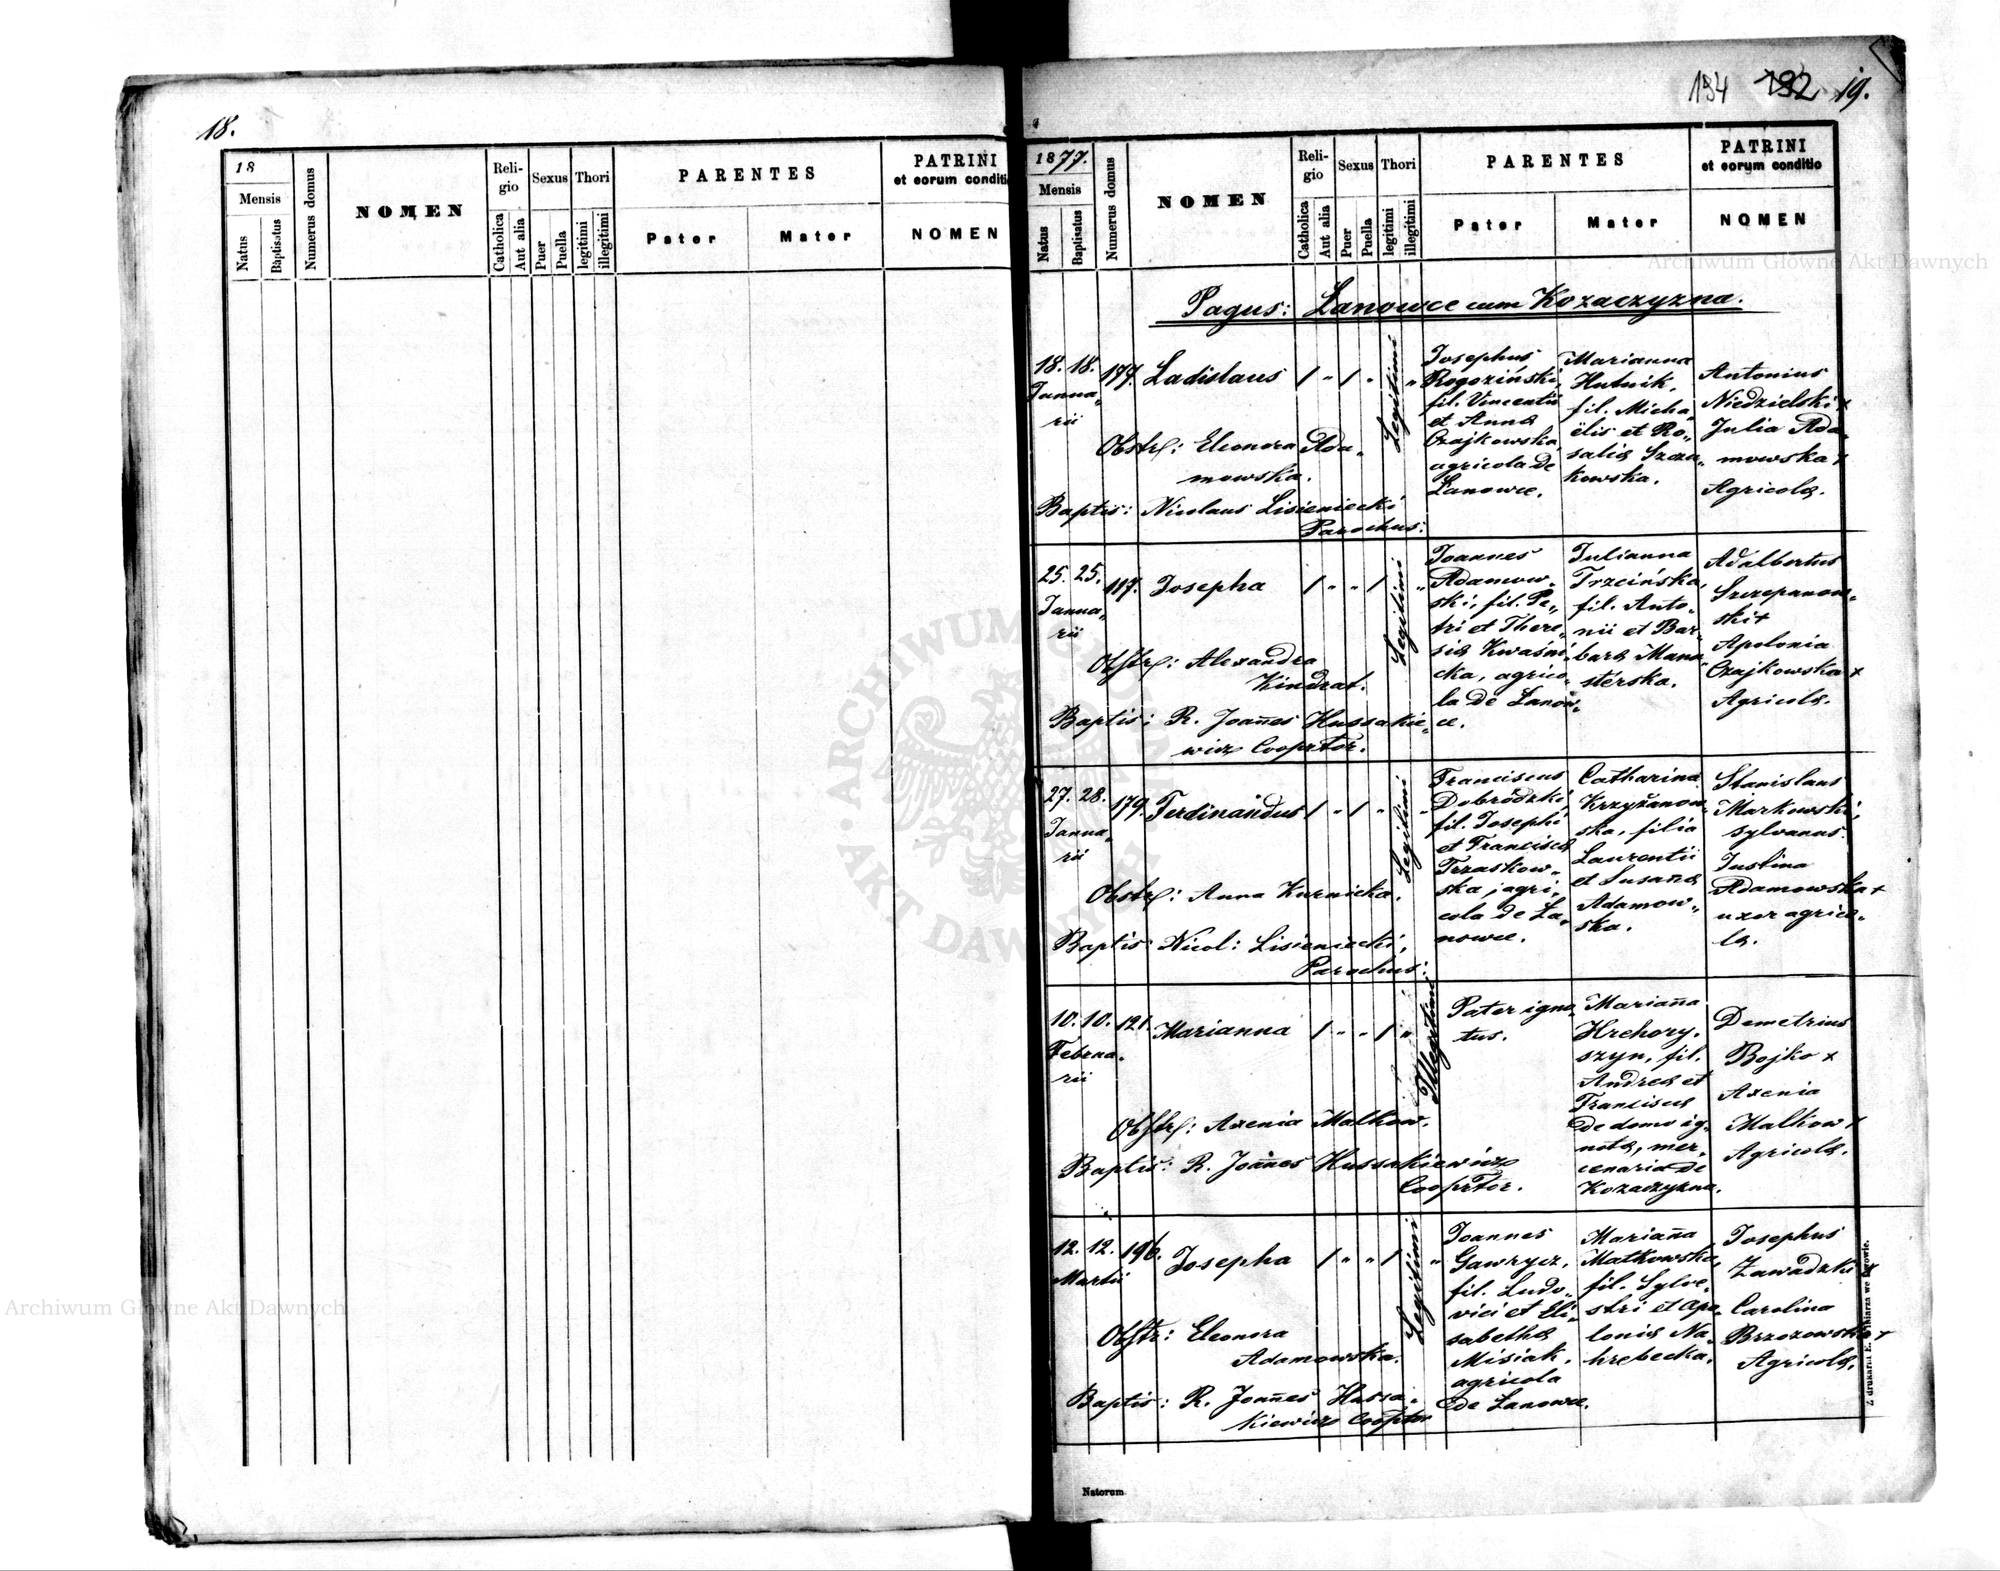 18.
18
Mensis
Natus
Baptisatus
Numerus domus
NOMEN
Reli-
gio
Catholica
Aut alia
Sexus
Puer
Puella
Thori
legitimi
illegitimi
PARENTES
Pater
Mater
PATRINI
et eorum conditio
NOMEN
194 192 19.
1877.
Mensis
Natus
Baptisatus
Numerus domus
NOMEN
Reli-
gio
Catholica
Aut alia
Sexus
Puer
Puella
Thori
legitimi
illegitimi
PARENTES
Pater
Mater
PATRINI
et eorum conditio
NOMEN
Archiwum Główne Akt Dawnych
Pagus: Lanowce cum Kozaczyzna.
18. 18. 177. Ladislaus / „ / „ Legitimi „
Janua„
rii
Obstr: Eleonora Ada„
mowska.
Baptis: Nicolaus Lisieniecki
Parochus.
Josephus
Rogoziński,
fil. Vincentii
et Anna
Czajkowska,
agricola de
Lanowce.
Marianna
Hutnik,
fil. Micha„
ëlis et Ro„
salia Szcza„
kowska.
Antonius
Niedzielski +
Julia Ada„
mowska +
Agricola.
25. 25. 117. Josepha / „ „ / Legitimi „
Janua„
rii
Obstr: Alexandra
Kindrat.
Baptis: R. Joañes Hussakie„
wicz Cooprtor.
Joannes
Adamow„
ski, fil. Pe„
tri et There„
sia Kwaśni„
cka, agrico„
la de Lanow„
ce.
Julianna
Trzcińska,
fil. Anto„
nii et Bar„
bara Mana„
stérska.
Adalbertus
Szczepanow„
ski +
Apolonia
Czajkowska +
Agricola.
27. 28. 179. Ferdinandus / „ / „ Legitimi „
Janua„
rii
Obstr: Anna Kurnicka.
Baptis: Nicol: Lisieniecki,
Parochus.
Franciscus
Dobródzki,
fil. Josephi
et Francisca
Trzaskow„
ska, agri„
cola de La„
nowce.
Catharina
Krzyżanow„
ska, filia
Laurentii
et Susaña
Adamow„
ska.
Stanislaus
Markowski,
sylvanus.
Justina
Adamowska +
uxor agrico„
la.
10. 10. 121. Marianna / „ „ / „ Illegitimi
Februa„
rii
Obstr: Axenia Malkow.
Baptis: R. Joañes Hussakiewicz
Cooprtor.
Pater igno„
tus.
Mariaña
Hrehory„
szyn, fil.
Andrea et
Francisca
de domo ig„
nota, mer„
cenaria de
Kozaczyzna.
Demetrius
Bojko +
Axenia
Malkow +
Agricola.
12. 12. 196. Josepha / „ „ / Legitimi „
Martii
Obstr: Eleonora
Adamowska.
Baptis: R. Joañes Hussa„
kiewicz Cooprtor
Joannes
Gawrycz,
fil. Ludo„
vici et Eli„
sabetha
Misiak,
agricola
de Lanowce.
Mariaña
Malkowska,
fil. Sylve„
stri et Apo„
lonia Na„
hrebecka.
Josephus
Zawadzki +
Carolina
Brzozowska +
Agricola.
Z drukarni E. Winiarza we Lwowie.
Natorum
ARCHIWUM GŁÓWNE
AKT DAWNYCH
Archiwum Główne Akt Dawnych